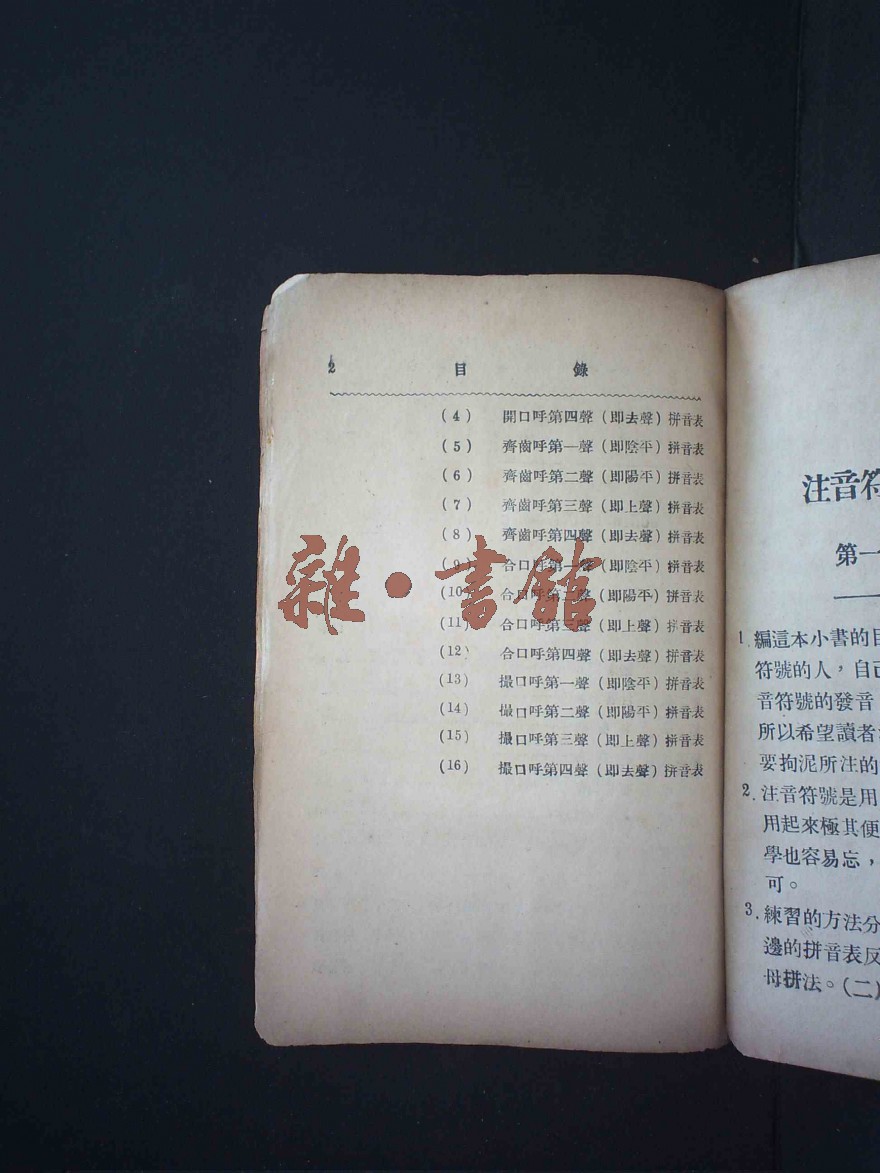 2 目 錄
(4) 開口呼第四聲(即去聲)拼音表
(5) 齊齒呼第一聲(即陰平)拼音表
(6) 齊齒呼第二聲(即陽平)拼音表
(7) 齊齒呼第三聲(即上聲)拼音表
(8) 齊齒呼第四聲(即去聲)拼音表
(9) 合口呼第一聲(即陰平)拼音表
(10) 合口呼第二聲(即陽平)拼音表
(11) 合口呼第三聲(即上聲)拼音表
(12) 合口呼第四聲(即去聲)拼音表
(13) 撮口呼第一聲(即陰平)拼音表
(14) 撮口呼第二聲(即陽平)拼音表
(15) 撮口呼第三聲(即上聲)拼音表
(16) 撮口呼第四聲(即去聲)拼音表
雜·書館
注音符
第一
1. 編這本小書的目
符號的人，自己
音符號的發音
所以希望讀者
要拘泥所注的
2. 注音符號是用
用起來極其便
學也容易忘，
可。
3. 練習的方法分
邊的拼音表反
母拼法。(二)